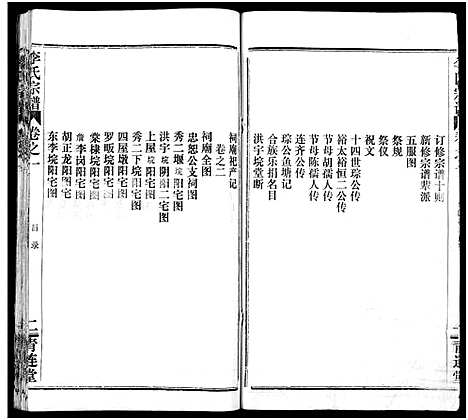 订修宗谱十则
新修宗谱辈派
五服图
祭规
祭仪
祝文
十四世琮公传
裕太裕恒二公传
节母胡孺人传
节母陈孺人传
连齐公传
琮公鱼塘记
合族乐捐名目
洪宇垸堂断
祠庙祀产记
卷之二
祠庙全图
忠恕公支祠图
秀二堰垸阳宅图
洪宇垸阴阳二宅图
上屋垸阳宅图
秀二下垸阳宅图
四屋墩阳宅图
罗畈垸阳宅图
棠棣垸阳宅图
詹李岗阳宅图
胡正龙阳宅图
东李垸阳宅图
李氏宗谱
卷之一
目录
二
青莲堂